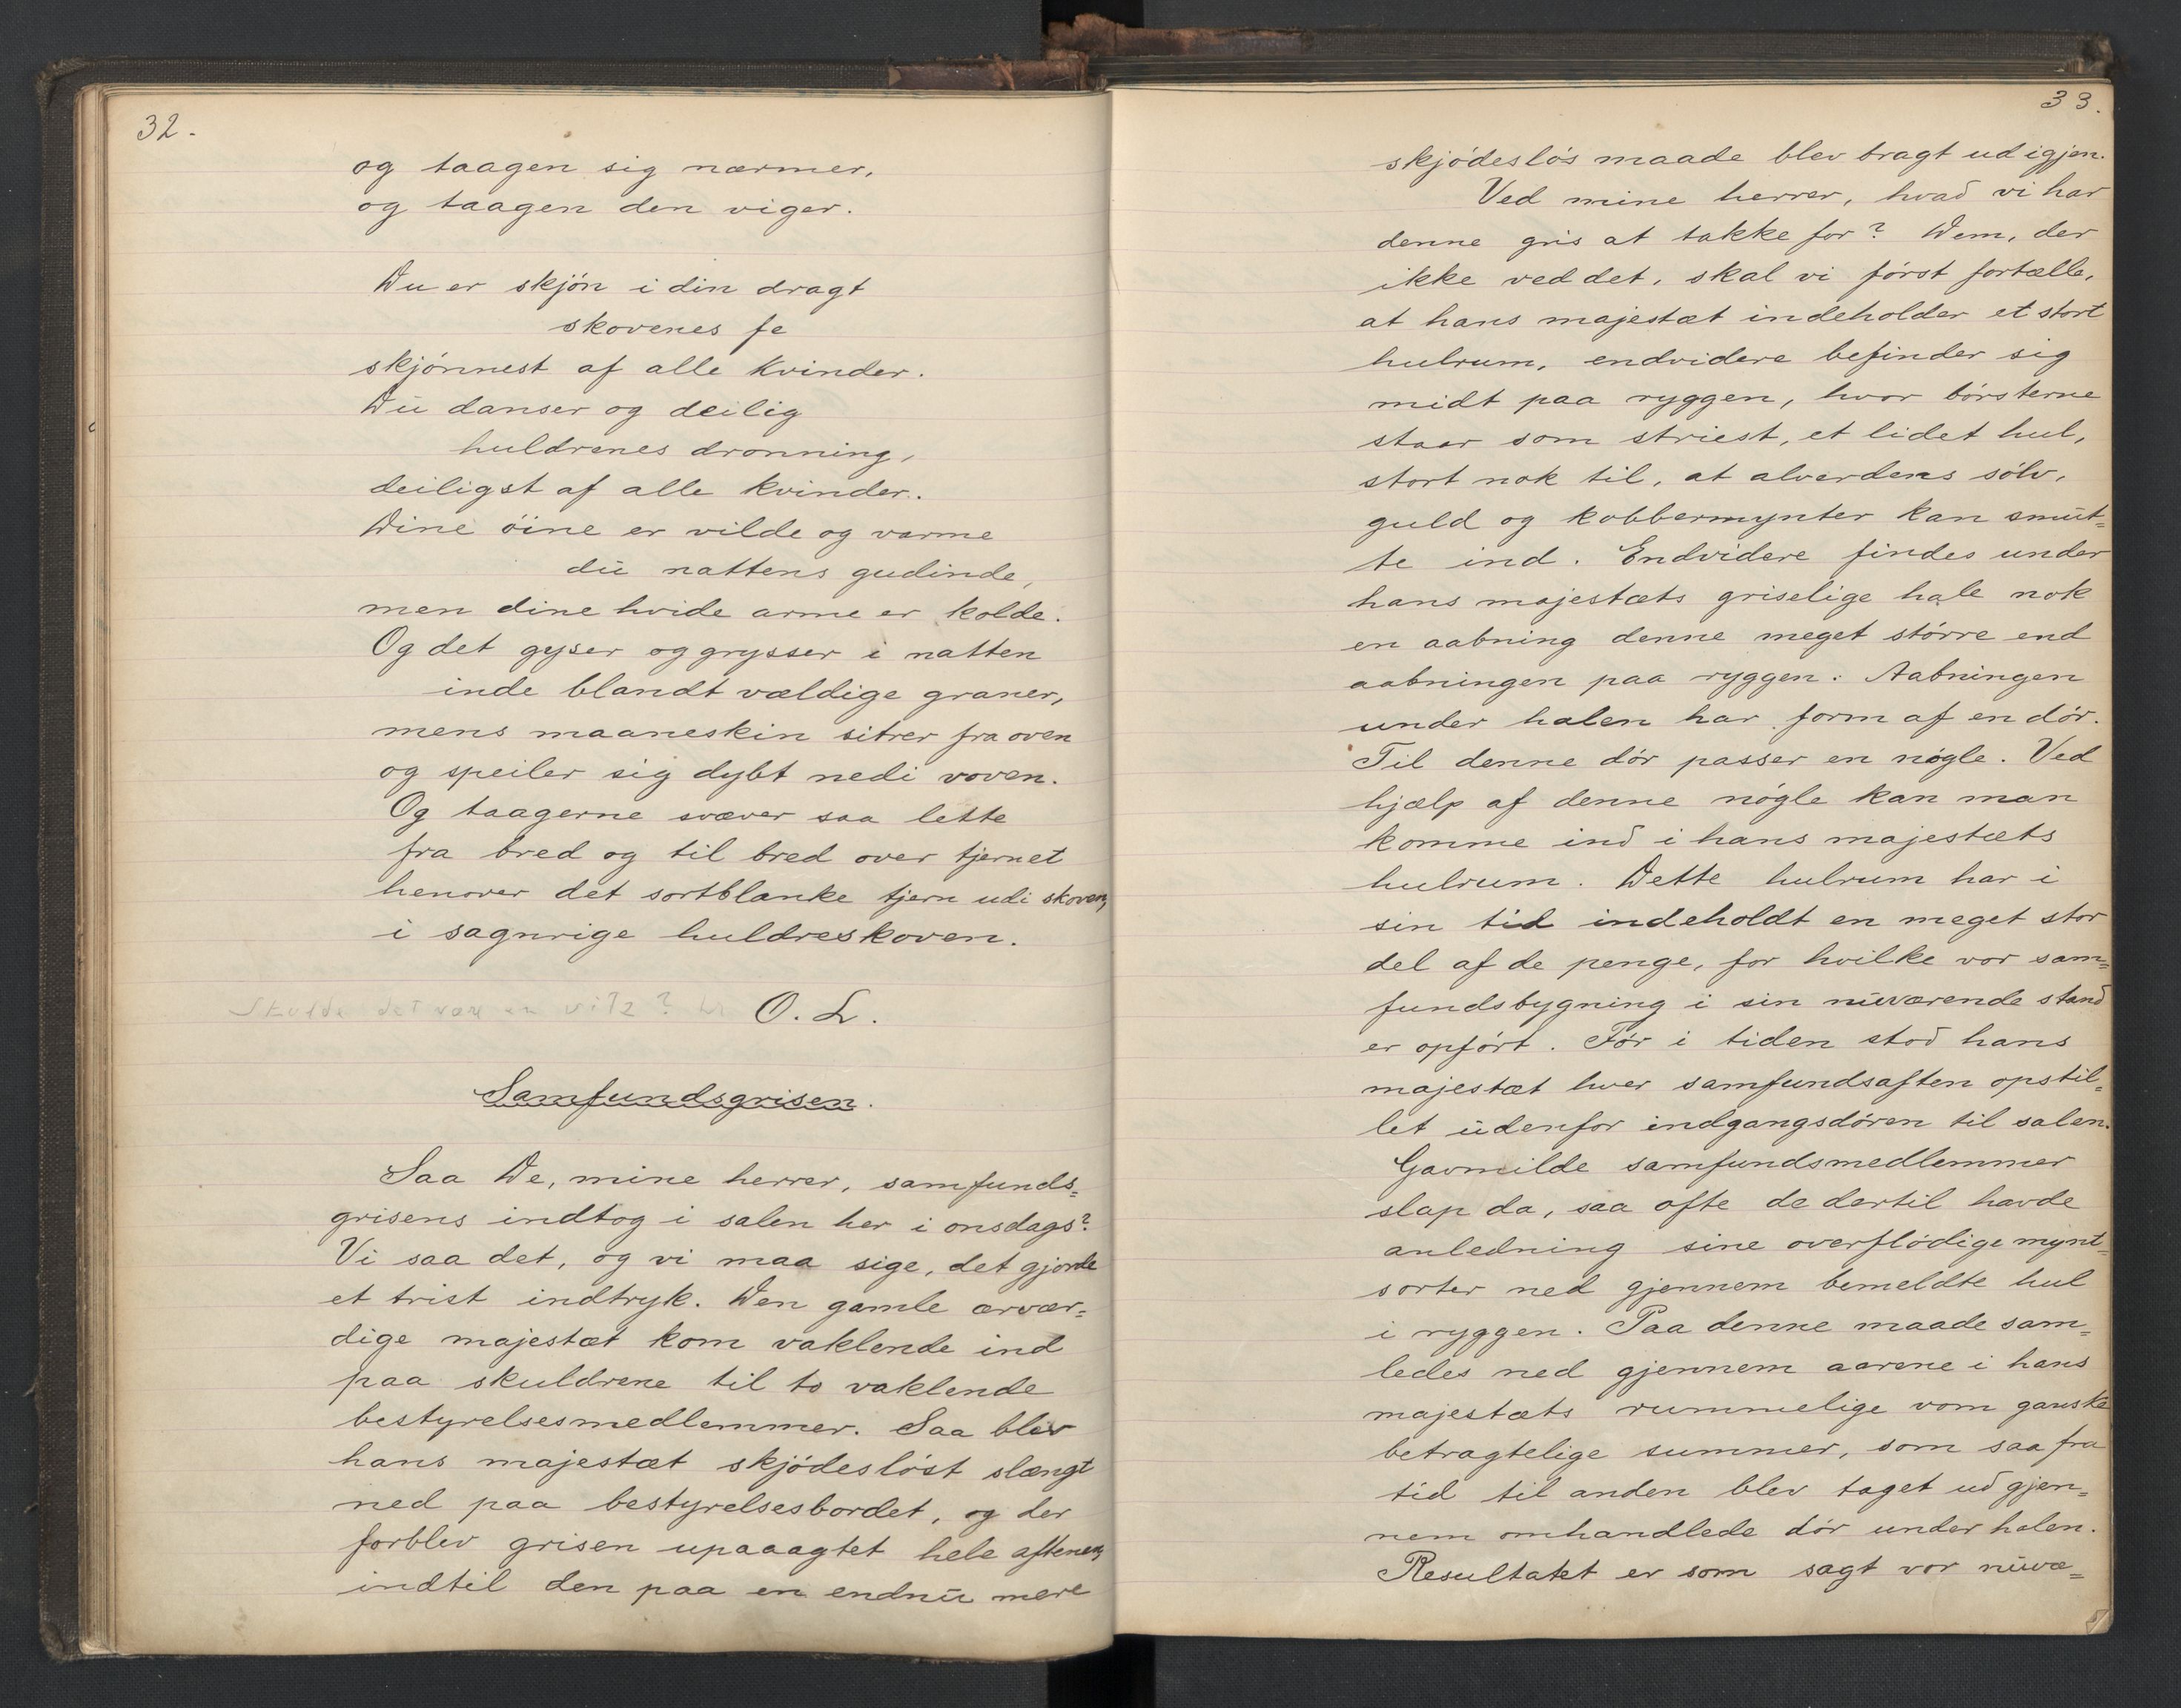 32.
og taagen sig nærmer,
og taagen den viger.
Du er skjön i din dragt
skovenes fe
skjönnest af alle kvinder.
Du danser og deilig
huldrenes dronning,
deiligst af alle kvinder.
Dine öine er vilde og varme
du nattens gudinde,
men dine hvide arme er kolde.
Og det gyser og grysser i natten
inde blandt vældige graner,
mens maaneskin sitrer fra oven
og speiler sig dybt nedi voven.
Og taagerne svæver saa lette
fra bred og til bred over tjernet
henover det sortblanke tjern udi skoven,
i sagnrige huldreskoven.
Skulde det være en vits? O. L.
Samfundsgrisen.
Saa De, mine herrer, samfunds=
grisens indtog i salen her i onsdags?
Vi saa det, og vi maa sige, det gjorde
et trist indtryk. Den gamle ærvær=
dige majestæt kom vaklende ind
paa skuldrene til to vaklende
bestyrelsesmedlemmer. Saa blev
hans majestæt skjödeslöst slængt
ned paa bestyrelsesbordet, og der
forblev grisen upaaagtet hele aftenen,
indtil den paa en endnu mere
33.
skjödeslös maade blev bragt ud igjen.
Ved mine herrer, hvad vi har
denne gris at takke for? Dem, der
ikke ved det, skal vi först fortælle,
at hans majestæt indeholder et stort
hulrum, endvidere befinder sig
midt paa ryggen, hvor börsterne
staar som striest, et lidet hul,
stort nok til, at alverdens sölv,
guld og kobbermynter kan smut=
te ind. Endvidere findes under
hans majestæts griselige hale nok
en aabning denne meget större end
aabningen paa ryggen. Aabningen
under halen har form af en dör.
Til denne dör passer en nögle. Ved
hjælp af denne nögle kan man
komme ind i hans majestæts
hulrum. Dette hulrum har i
sin tid indeholdt en meget stor
del af de penge, for hvilke vor sam=
fundsbygning i sin nuværende stand
er opfört. För i tiden stod hans
majestæt hver samfundsaften opstil=
let udenfor indgangsdören til salen.
Gavmilde samfundsmedlemmer
slap da, saa ofte de dertil havde
anledning sine overflödige mynt=
sorter ned gjennem bemeldte hul
i ryggen. Paa denne maade sam=
ledes ned gjennem aarene i hans
majestæts rummelige vom ganske
betragtelige summer, som saa fra
tid til anden blev taget ud gjen=
nem omhandlede dör under halen.
Resultatet er som sagt vor nuvæ=